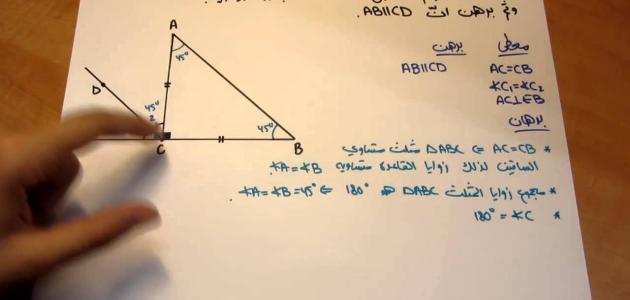 وثم برهن انّ AB||CD.
معطى برهن
AC=CB AB||CD
∢C₁=∢C₂
AC⊥EB
برهان
* AC=CB ⇐ ΔABC مثلث متساوي
الساقين لذلك زوايا القاعدة متساوية ∢A=∢B.
* مجموع زوايا المثلث ΔABC 180° ⇐ ∢A=∢B=45°.
* 180°=∢C
A
45°
D
45°
2
45°
C
B